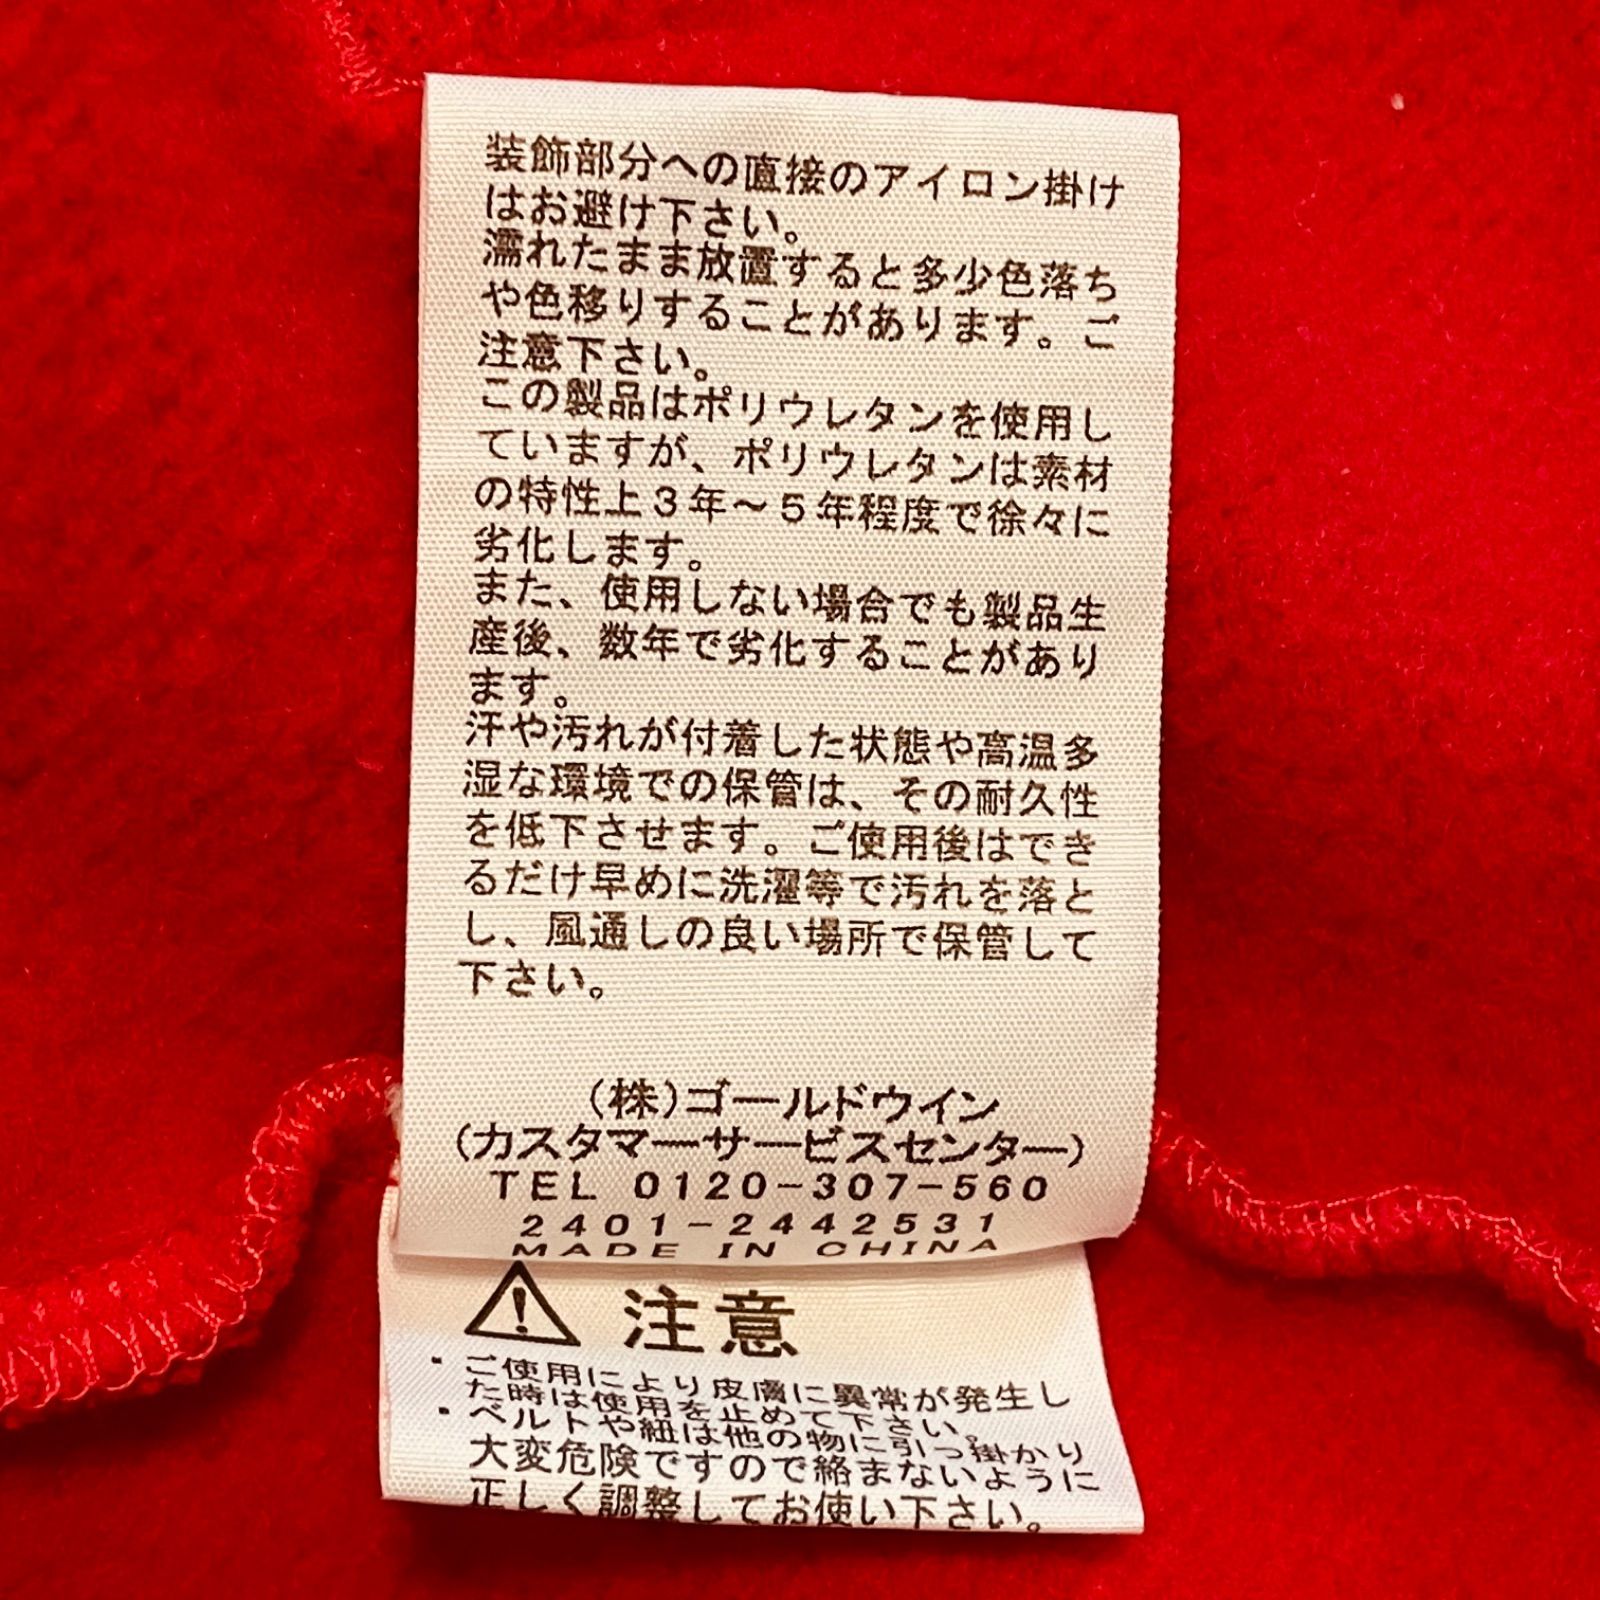 装飾部分への直接のアイロン掛け
はお避け下さい。
濡れたまま放置すると多少色落ち
や色移りすることがあります。ご
注意下さい。
この製品はポリウレタンを使用し
ていますが、ポリウレタンは素材
の特性上3年～5年程度で徐々に
劣化します。
また、使用しない場合でも製品生
産後、数年で劣化することがあり
ます。
汗や汚れが付着した状態や高温多
湿な環境での保管は、その耐久性
を低下させます。ご使用後はでき
るだけ早めに洗濯等で汚れを落と
し、風通しの良い場所で保管して
下さい。
(株)ゴールドウイン
(カスタマーサービスセンター)
TEL 0120-307-560
2401-2442531
MADE IN CHINA
注意
・ご使用により皮膚に異常が発生し
た時は使用を止めて下さい。
・ベルトや紐は他の物に引っ掛かり
大変危険ですので絡まないように
正しく調整してお使い下さい。